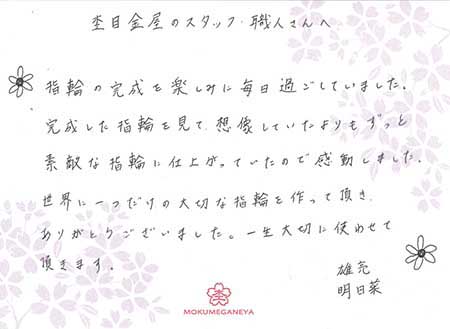 杢目金屋のスタッフ・職人さんへ
指輪の完成を楽しみに毎日過ごしていました。
完成した指輪を見て、想像していたよりもずっと
素敵な指輪に仕上がっていたので感動しました。
世界に一つだけの大切な指輪を作って頂き、
ありがとうございました。一生大切に使わせて
頂きます。
雄亮
明日菜
MOKUMEGANEYA